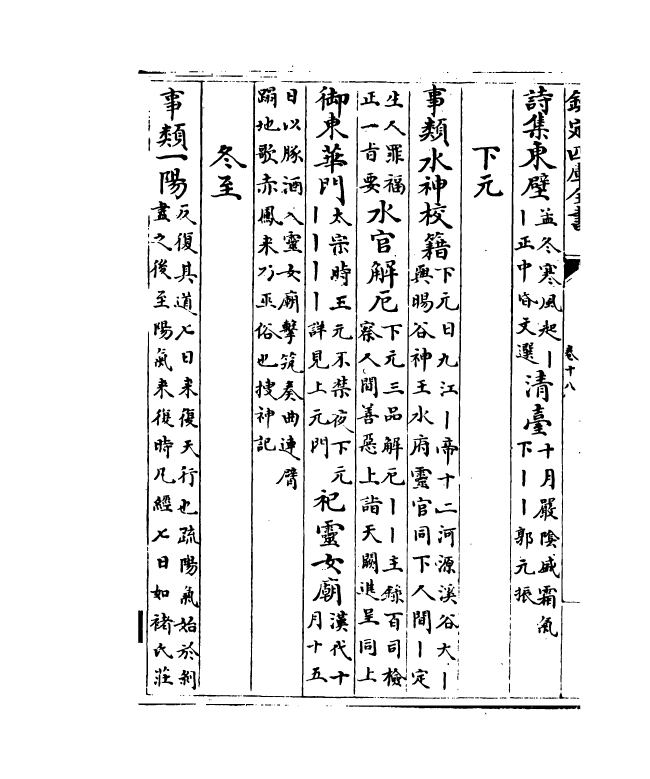 欽定四庫全書
卷十八
詩集東壁孟冬寒風起丨丨正中昏文選清臺十月嚴陰盛霜氣下丨丨郭元振
下元
事類水神校籍下元日九江丨帝十二河源溪谷大丨與暘谷神王水府靈官同下人間丨定
生人罪福正一旨要水官解厄下元三品解厄丨丨主錄百司檢察人間善惡上詣天闕進呈同上
御東華門太宗時王元不禁夜下元丨丨丨丨詳見上元門祀靈女廟漢代十月十五
日以豚酒入靈女廟擊筑奏曲連臂蹋地歌赤鳳来乃巫俗也搜神記
冬至
事類一陽反復其道七日来復天行也疏陽氣始於剝盡之後至陽氣来復時凡經七日如褚氏莊